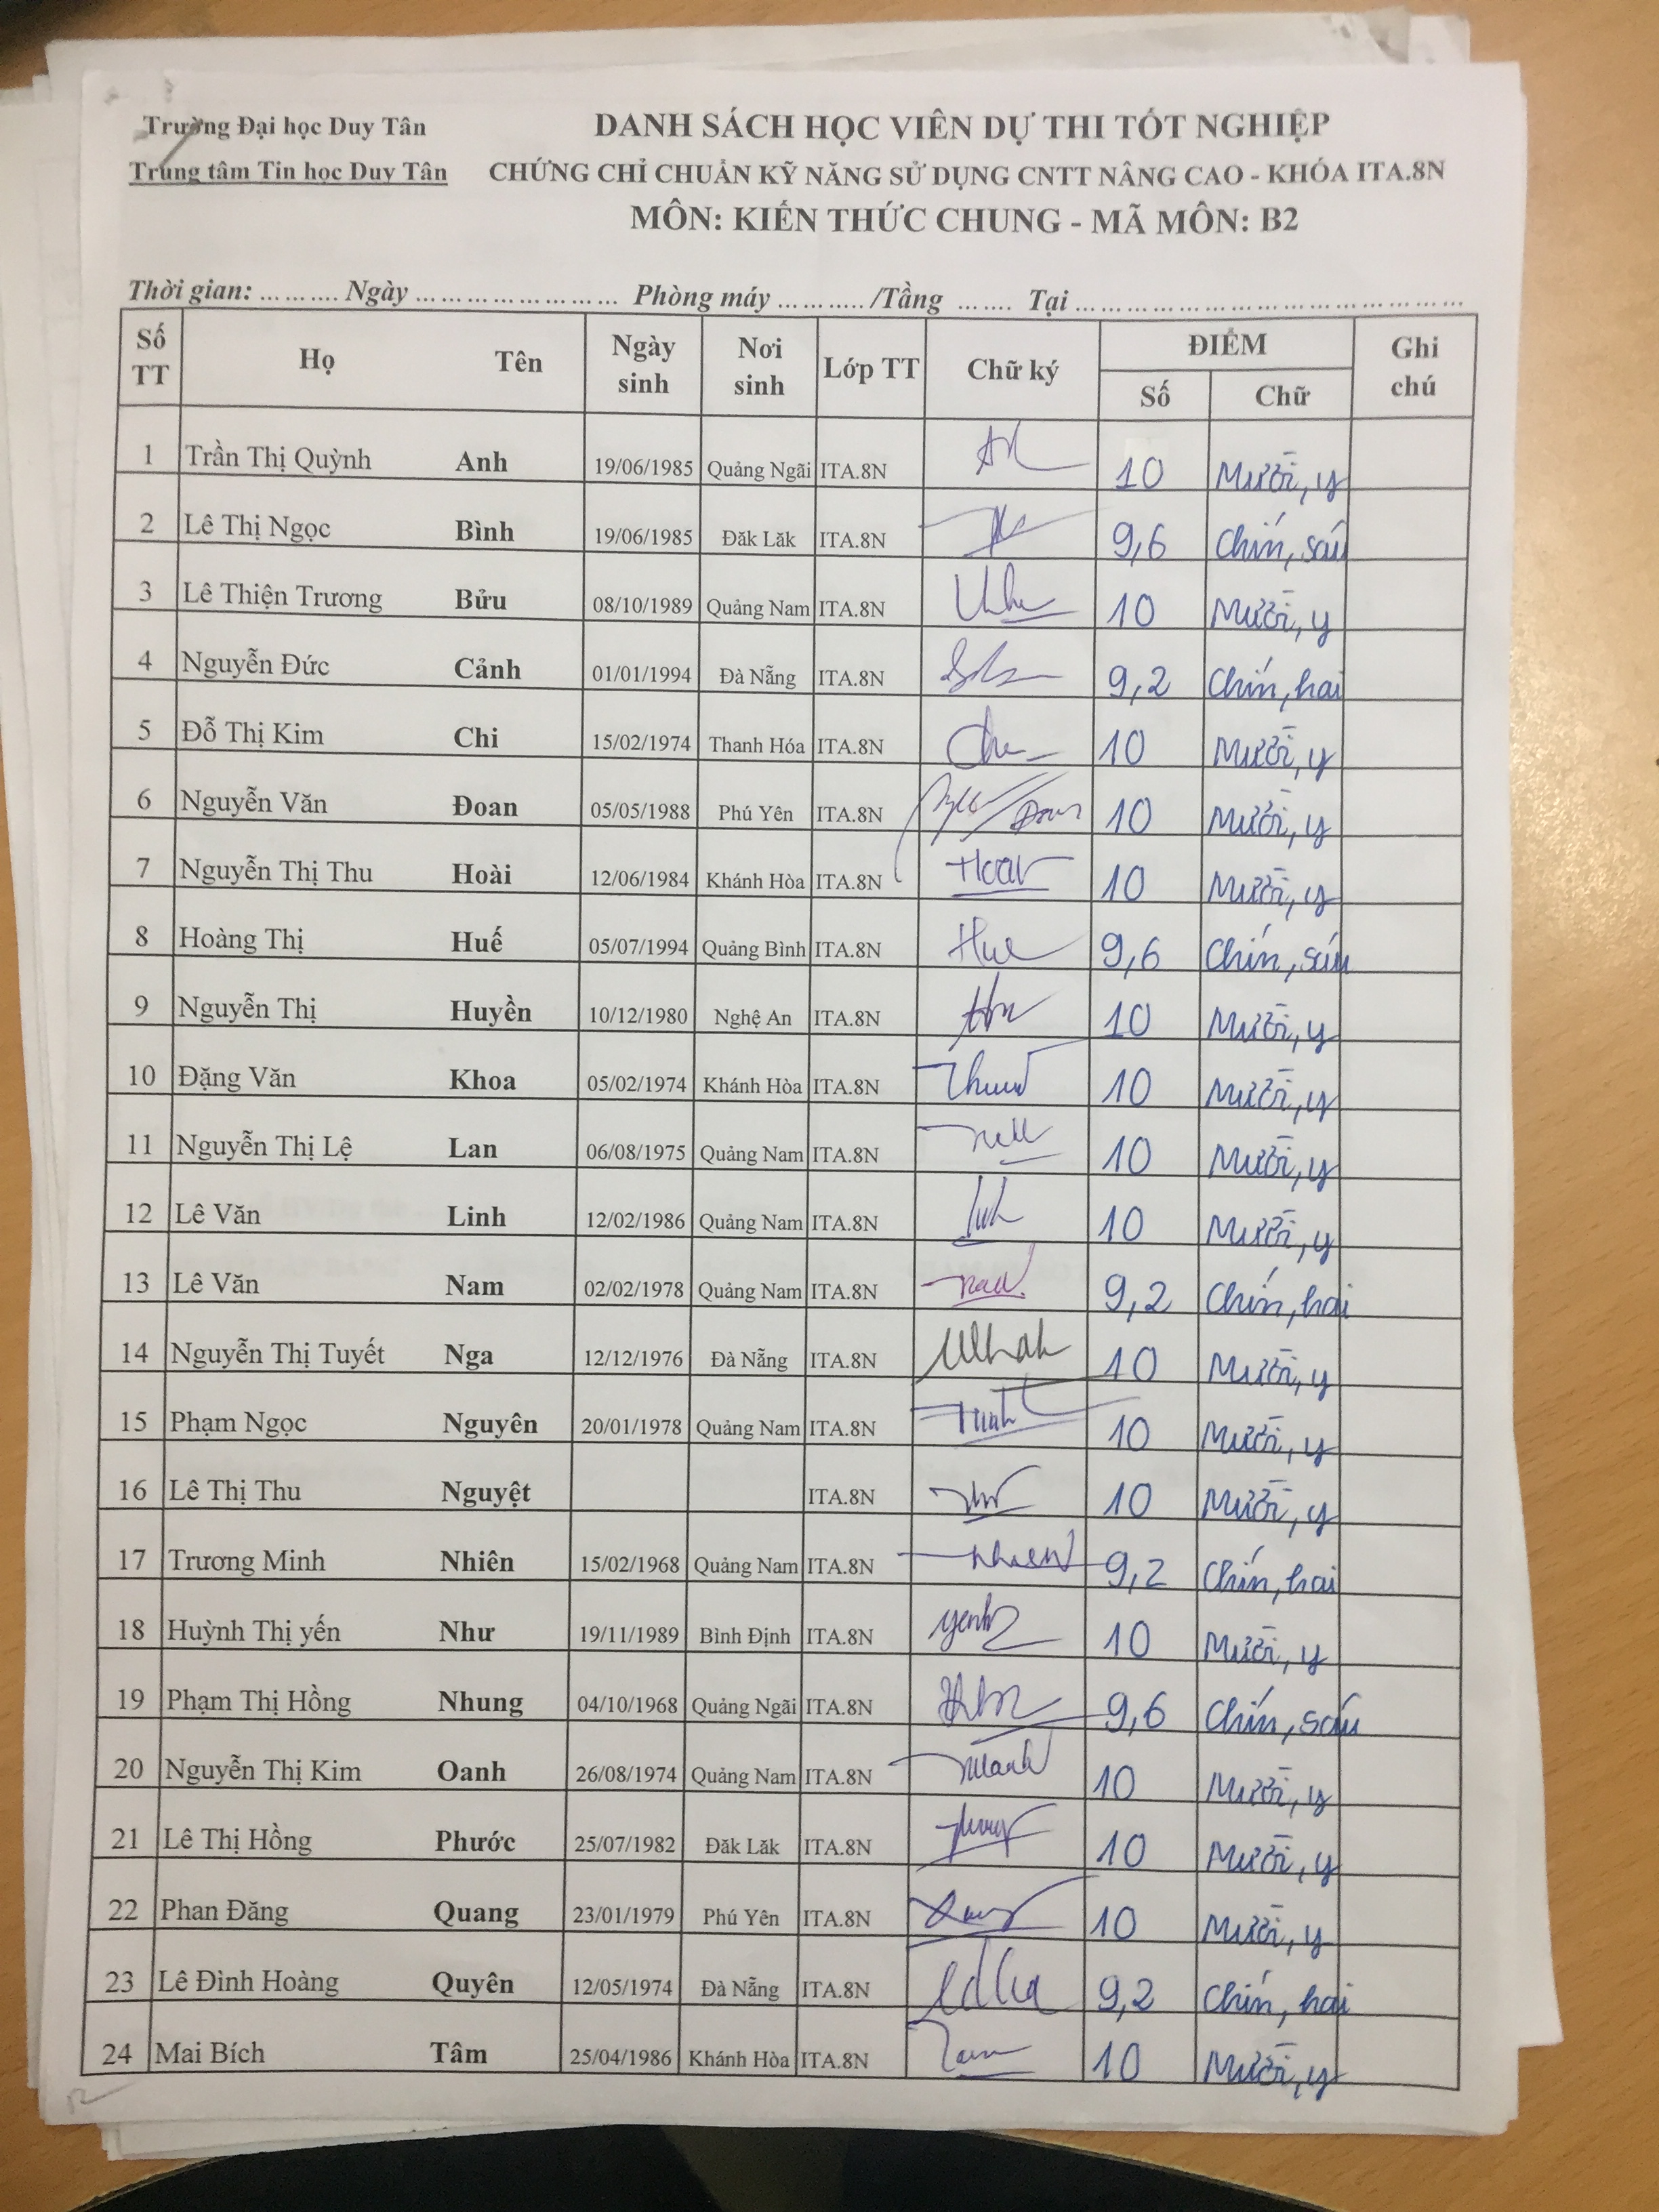 Trường Đại học Duy Tân
Trung tâm Tin học Duy Tân
DANH SÁCH HỌC VIÊN DỰ THI TỐT NGHIỆP
CHỨNG CHỈ CHUẨN KỸ NĂNG SỬ DỤNG CNTT NÂNG CAO - KHÓA ITA.8N
MÔN: KIẾN THỨC CHUNG - MÃ MÔN: B2
Thời gian: ………. Ngày …………………… Phòng máy ……….. /Tầng ……. Tại ……………………………………
Số TT Họ Tên Ngày sinh Nơi sinh Lớp TT Chữ ký ĐIỂM Ghi chú
Số Chữ
1 Trần Thị Quỳnh Anh 19/06/1985 Quảng Ngãi ITA.8N 10 Mười, y
2 Lê Thị Ngọc Bình 19/06/1985 Đăk Lăk ITA.8N 9,6 Chín, sáu
3 Lê Thiện Trương Bửu 08/10/1989 Quảng Nam ITA.8N 10 Mười, y
4 Nguyễn Đức Cảnh 01/01/1994 Đà Nẵng ITA.8N 9,2 Chín, hai
5 Đỗ Thị Kim Chi 15/02/1974 Thanh Hóa ITA.8N 10 Mười, y
6 Nguyễn Văn Đoan 05/05/1988 Phú Yên ITA.8N 10 Mười, y
7 Nguyễn Thị Thu Hoài 12/06/1984 Khánh Hòa ITA.8N 10 Mười, y
8 Hoàng Thị Huế 05/07/1994 Quảng Bình ITA.8N Hue 9,6 Chín, sáu
9 Nguyễn Thị Huyền 10/12/1980 Nghệ An ITA.8N 10 Mười, y
10 Đặng Văn Khoa 05/02/1974 Khánh Hòa ITA.8N 10 Mười, y
11 Nguyễn Thị Lệ Lan 06/08/1975 Quảng Nam ITA.8N 10 Mười, y
12 Lê Văn Linh 12/02/1986 Quảng Nam ITA.8N 10 Mười, y
13 Lê Văn Nam 02/02/1978 Quảng Nam ITA.8N 9,2 Chín, hai
14 Nguyễn Thị Tuyết Nga 12/12/1976 Đà Nẵng ITA.8N 10 Mười, y
15 Phạm Ngọc Nguyên 20/01/1978 Quảng Nam ITA.8N 10 Mười, y
16 Lê Thị Thu Nguyệt ITA.8N 10 Mười, y
17 Trương Minh Nhiên 15/02/1968 Quảng Nam ITA.8N 9,2 Chín, hai
18 Huỳnh Thị yến Như 19/11/1989 Bình Định ITA.8N 10 Mười, y
19 Phạm Thị Hồng Nhung 04/10/1968 Quảng Ngãi ITA.8N 9,6 Chín, sáu
20 Nguyễn Thị Kim Oanh 26/08/1974 Quảng Nam ITA.8N 10 Mười, y
21 Lê Thị Hồng Phước 25/07/1982 Đăk Lăk ITA.8N 10 Mười, y
22 Phan Đăng Quang 23/01/1979 Phú Yên ITA.8N 10 Mười, y
23 Lê Đình Hoàng Quyên 12/05/1974 Đà Nẵng ITA.8N 9,2 Chín, hai
24 Mai Bích Tâm 25/04/1986 Khánh Hòa ITA.8N 10 Mười, y